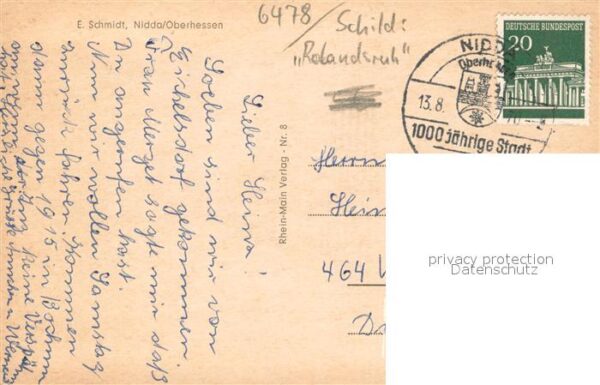 E. Schmidt, Nidda/Oberhessen
6478
Schild:
„Rolandsruh"
DEUTSCHE BUNDESPOST
20
NIDDA
Oberhessen
13.8.
1000 jährige Stadt
Rhein-Main Verlag - Nr. 8
Lieber Heinz!
Soeben sind wir von
Eichelsdorf gekommen.
Frau Merget sagte mir daß
Du angerufen hast.
Nun wir wollen Samstag
zurück fahren, kommen
dann gegen 19 15 in Bochum
an, wenn der Zug keine Verspä-
tung
Herrn
Hein
464
privacy protection
Datenschutz